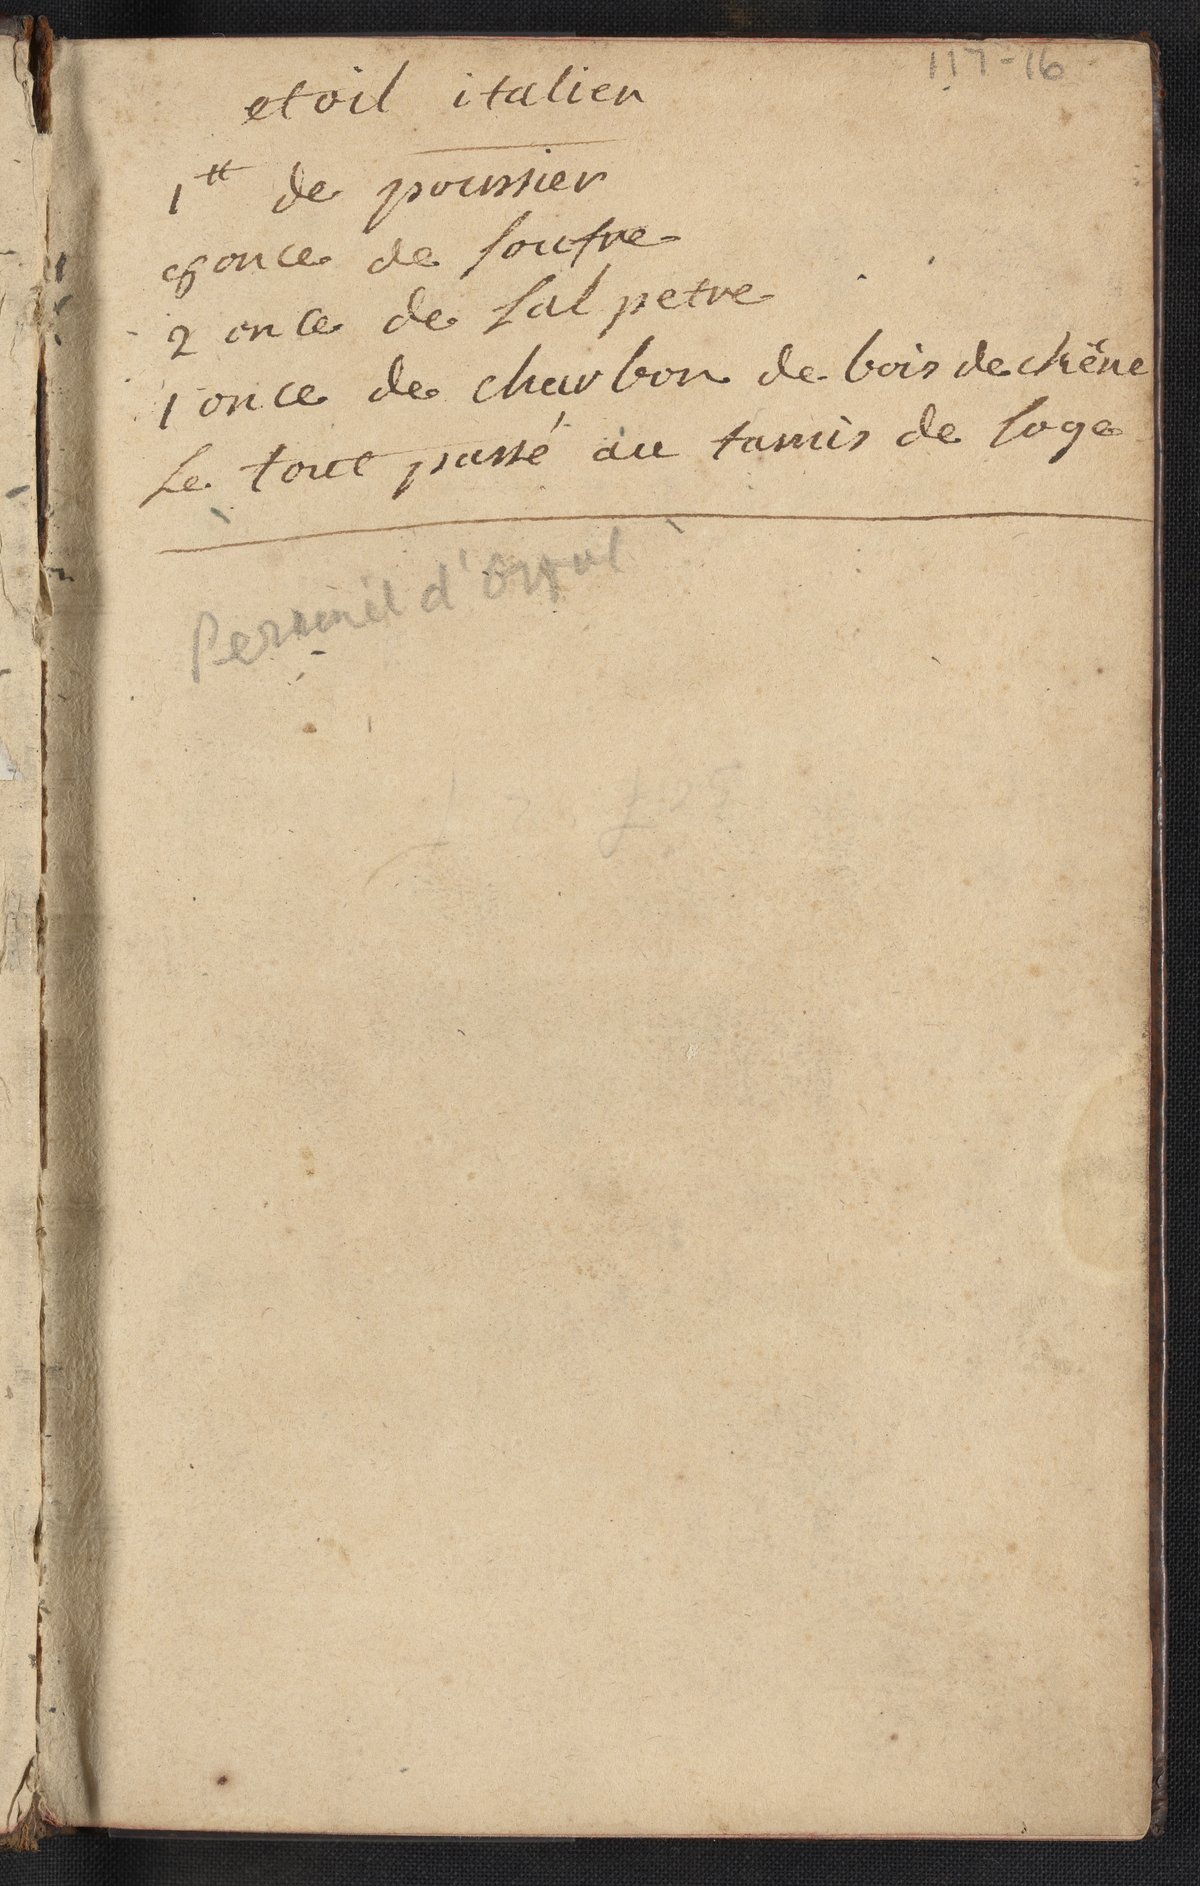 117-16
etoil italien
1 ℔ de poussier
8 once de soufre
2 once de sal petre
1 once de charbon de bois de chêne
Le tout passé au tamis de soye
d'